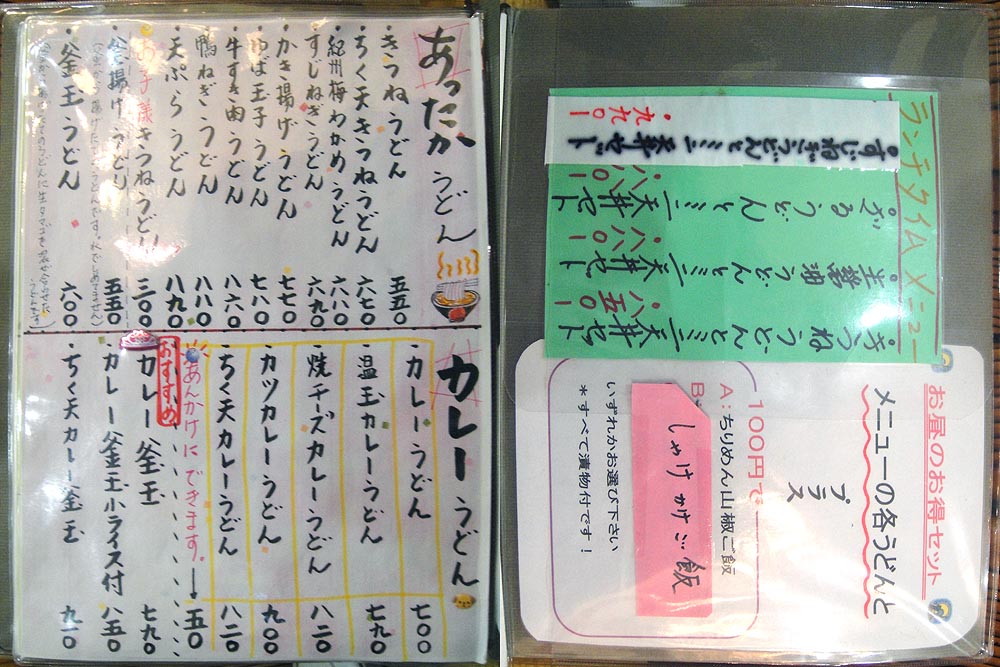 あったかうどん
・きつねうどん 五五〇
・ちく天きつねうどん 六七〇
・紀州梅わかめうどん 六八〇
・すじねぎうどん 六九〇
・かき揚げうどん 七七〇
・ゆば玉子うどん 七八〇
・牛すき肉うどん 八六〇
・鴨ねぎうどん 八八〇
・天ぷらうどん 八九〇
・お子様きつねうどん 三〇〇
・釜揚げうどん 五五〇
・釜玉うどん 六〇〇
カレーうどん
・カレーうどん 七〇〇
・温玉カレーうどん 七九〇
・焼チーズカレーうどん 八二〇
・カツカレーうどん 九〇〇
・ちく天カレーうどん 八二〇
あんかけにできます。→ 五〇
おすすめ
・カレー釜玉 七九〇
・カレー釜玉小ライス付 八五〇
・ちく天カレー釜玉
ランチタイムメニュー
・きつねうどんとミニ天丼セット
・八五〇
・生醤油うどんとミニ天丼セット
・八八〇
・ざるうどんとミニ天丼セット
・八八〇
・すじねぎうどんとミニ天丼セット
・九九〇
お昼のお得セット
メニューの各うどんと
プラス
100円で
A:ちりめん山椒ご飯
B:
しゃけかけご飯
いずれかお選び下さい
*すべて漬物付です!